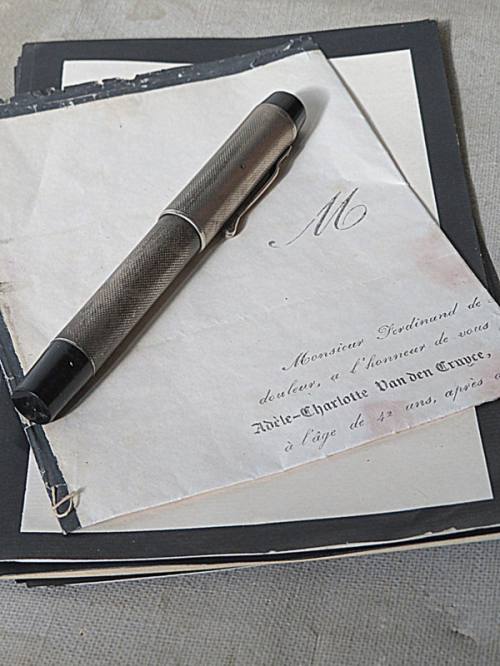 M
Monsieur Ferdinand de
douleur, a l'honneur de vous
Adèle-Charlotte Van den Cruyce,
à l'âge de 42 ans, après